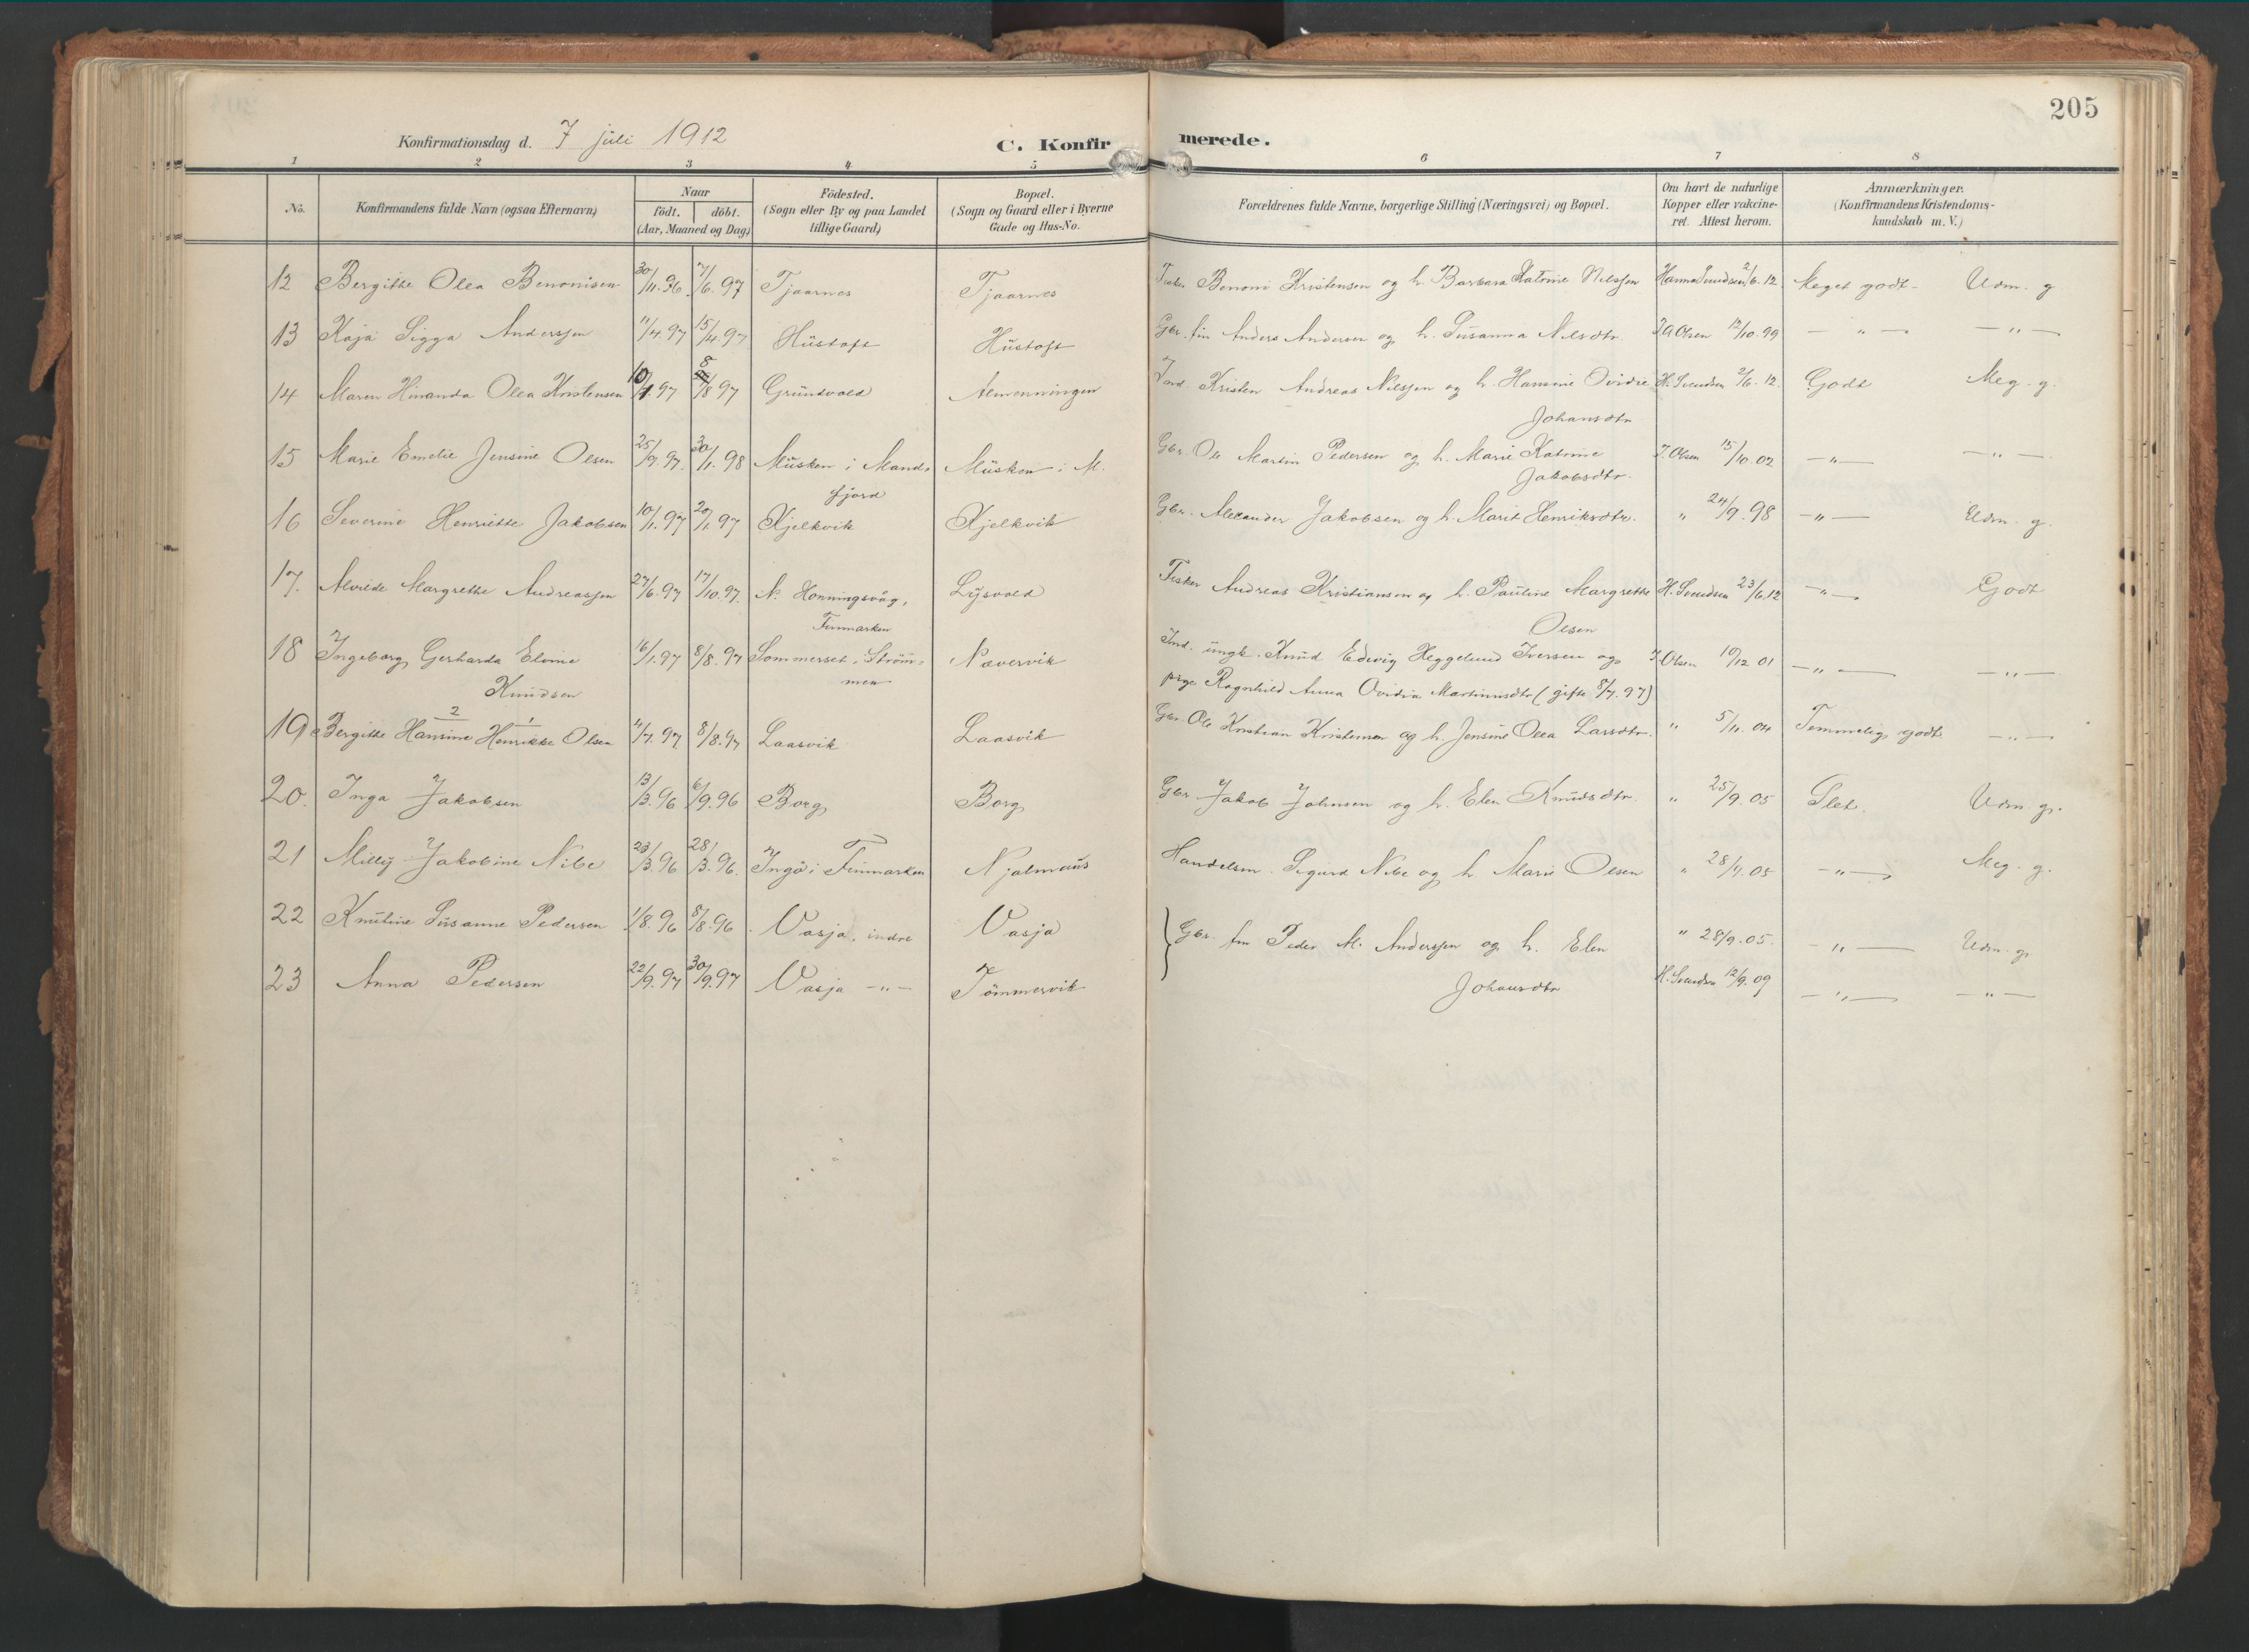 205
Konfirmationsdag d. 7 juli 1912 C. Konfirmerede.
1 2 3 4 5 6 7 8
No. Konfirmandens fulde Navn (ogsaa Efternavn) Naar födt. döbt. (Aar, Maaned og Dag) Födested. (Sogn eller By og paa Landet tillige Gaard) Bopæl. (Sogn og Gaard eller i Byerne Gade og Hus-No. Forældrenes fulde Navne, borgerlige Stilling (Næringsvei) og Bopæl. Om havt de naturlige Kopper eller vakcineret. Attest herom. Anmærkninger. (Konfirmandens Kristendomskundskab m. V.)
12 Bergitte Olea Benonisen 30/11.96 7/6.97 Tjaarnes Tjaarnes Fisker Benoni Kristensen og h. Barbara Katrine Nilssen Hanna Svendsen 2/6.12 Meget godt - Udm. g
13 Kaja Sigga Anderssen 11/4.97 15/4.97 Hustoft Hustoft Gbr. fin Anders Andersen og h. Susanna Nilsdtr. I A Olsen 12/10.99 — " — — " —
14 Maren Hinanda Olea Kristensen 10/1.97 8/8 97 Grundvold Almenningen Ind. Kristen Andreas Nilssen og h. Hansine Ovidie H. Svendsen 2/6.12. Godt Meg. g.
Johansdtr
15 Marie Emelie Jensine Olsen 25/9.97. 30/1.98 Musken i Mands Musken i M. Gbr. Ole Martin Pedersen og h. Marie Katrine I. Olsen 15/10.02 — " — — " —
fjord Jakobsdtr.
16 Severine Henriette Jakobsen 10/1.97 20/1.97 Kjelkvik Kjelkvik Gbr. Alexander Jakobsen og h. Marit Henriksdtr. " 24/9.98 — " — Udm. g.
17. Alvilde Margrethe Andreassen 27/6.97 17/10.97. N. Honningsvåg, Lysvold Fisker Andreas Kristiansen og h. Pauline Margrethe H. Svendsen 23/6.12 — " — Godt
Finmarken Olsen
18 Ingeborg Gerharda Elvine 16/1.97 8/8.97 Sommerset, Ström- Nævervik Ind. ungk. Knud Edevig Heggelund Iversen og I. Olsen 19/12 01 — " — — " —
Knudsen men pige Ragnhild Anna Ovidia Martinusdtr (gifte 8/7.97)
2 1
19 Bergitte Hansine Henrikke Olsen 4/7.97 8/8.97 Laasvik Laasvik Gbr. Ole Kristian Kristensen og h. Jensine Olea Larsdtr. " 5/11.04 Temmelig godt. — " —
20. Inga Jakobsen 13/3.96 6/9.96 Borg Borg Gbr Jakob Johnsen og h. Elen Knudsdtr. " 25/9.05 Slet. Udm. g.
21 Milly Jakobine Nibe 23/3.96 28/3.96. Ingö i Finmarken Njalmaus Handelsm. Sigurd Nibe og h. Marie Olsen " 28/9.05 — " — Meg. g.
22 Knutine Susanne Pedersen 1/8.96 8/8.96 Vasja, indre Vasja Gbr. fin Peder M. Anderssen og h. Elen " 28/9.05. — " — Udm. g
23 Anna Pedersen 22/9.97 30/9.97 Vasja — " — Tömmervik Johansdtr H. Svendsen 12/9.09 — " — — " —